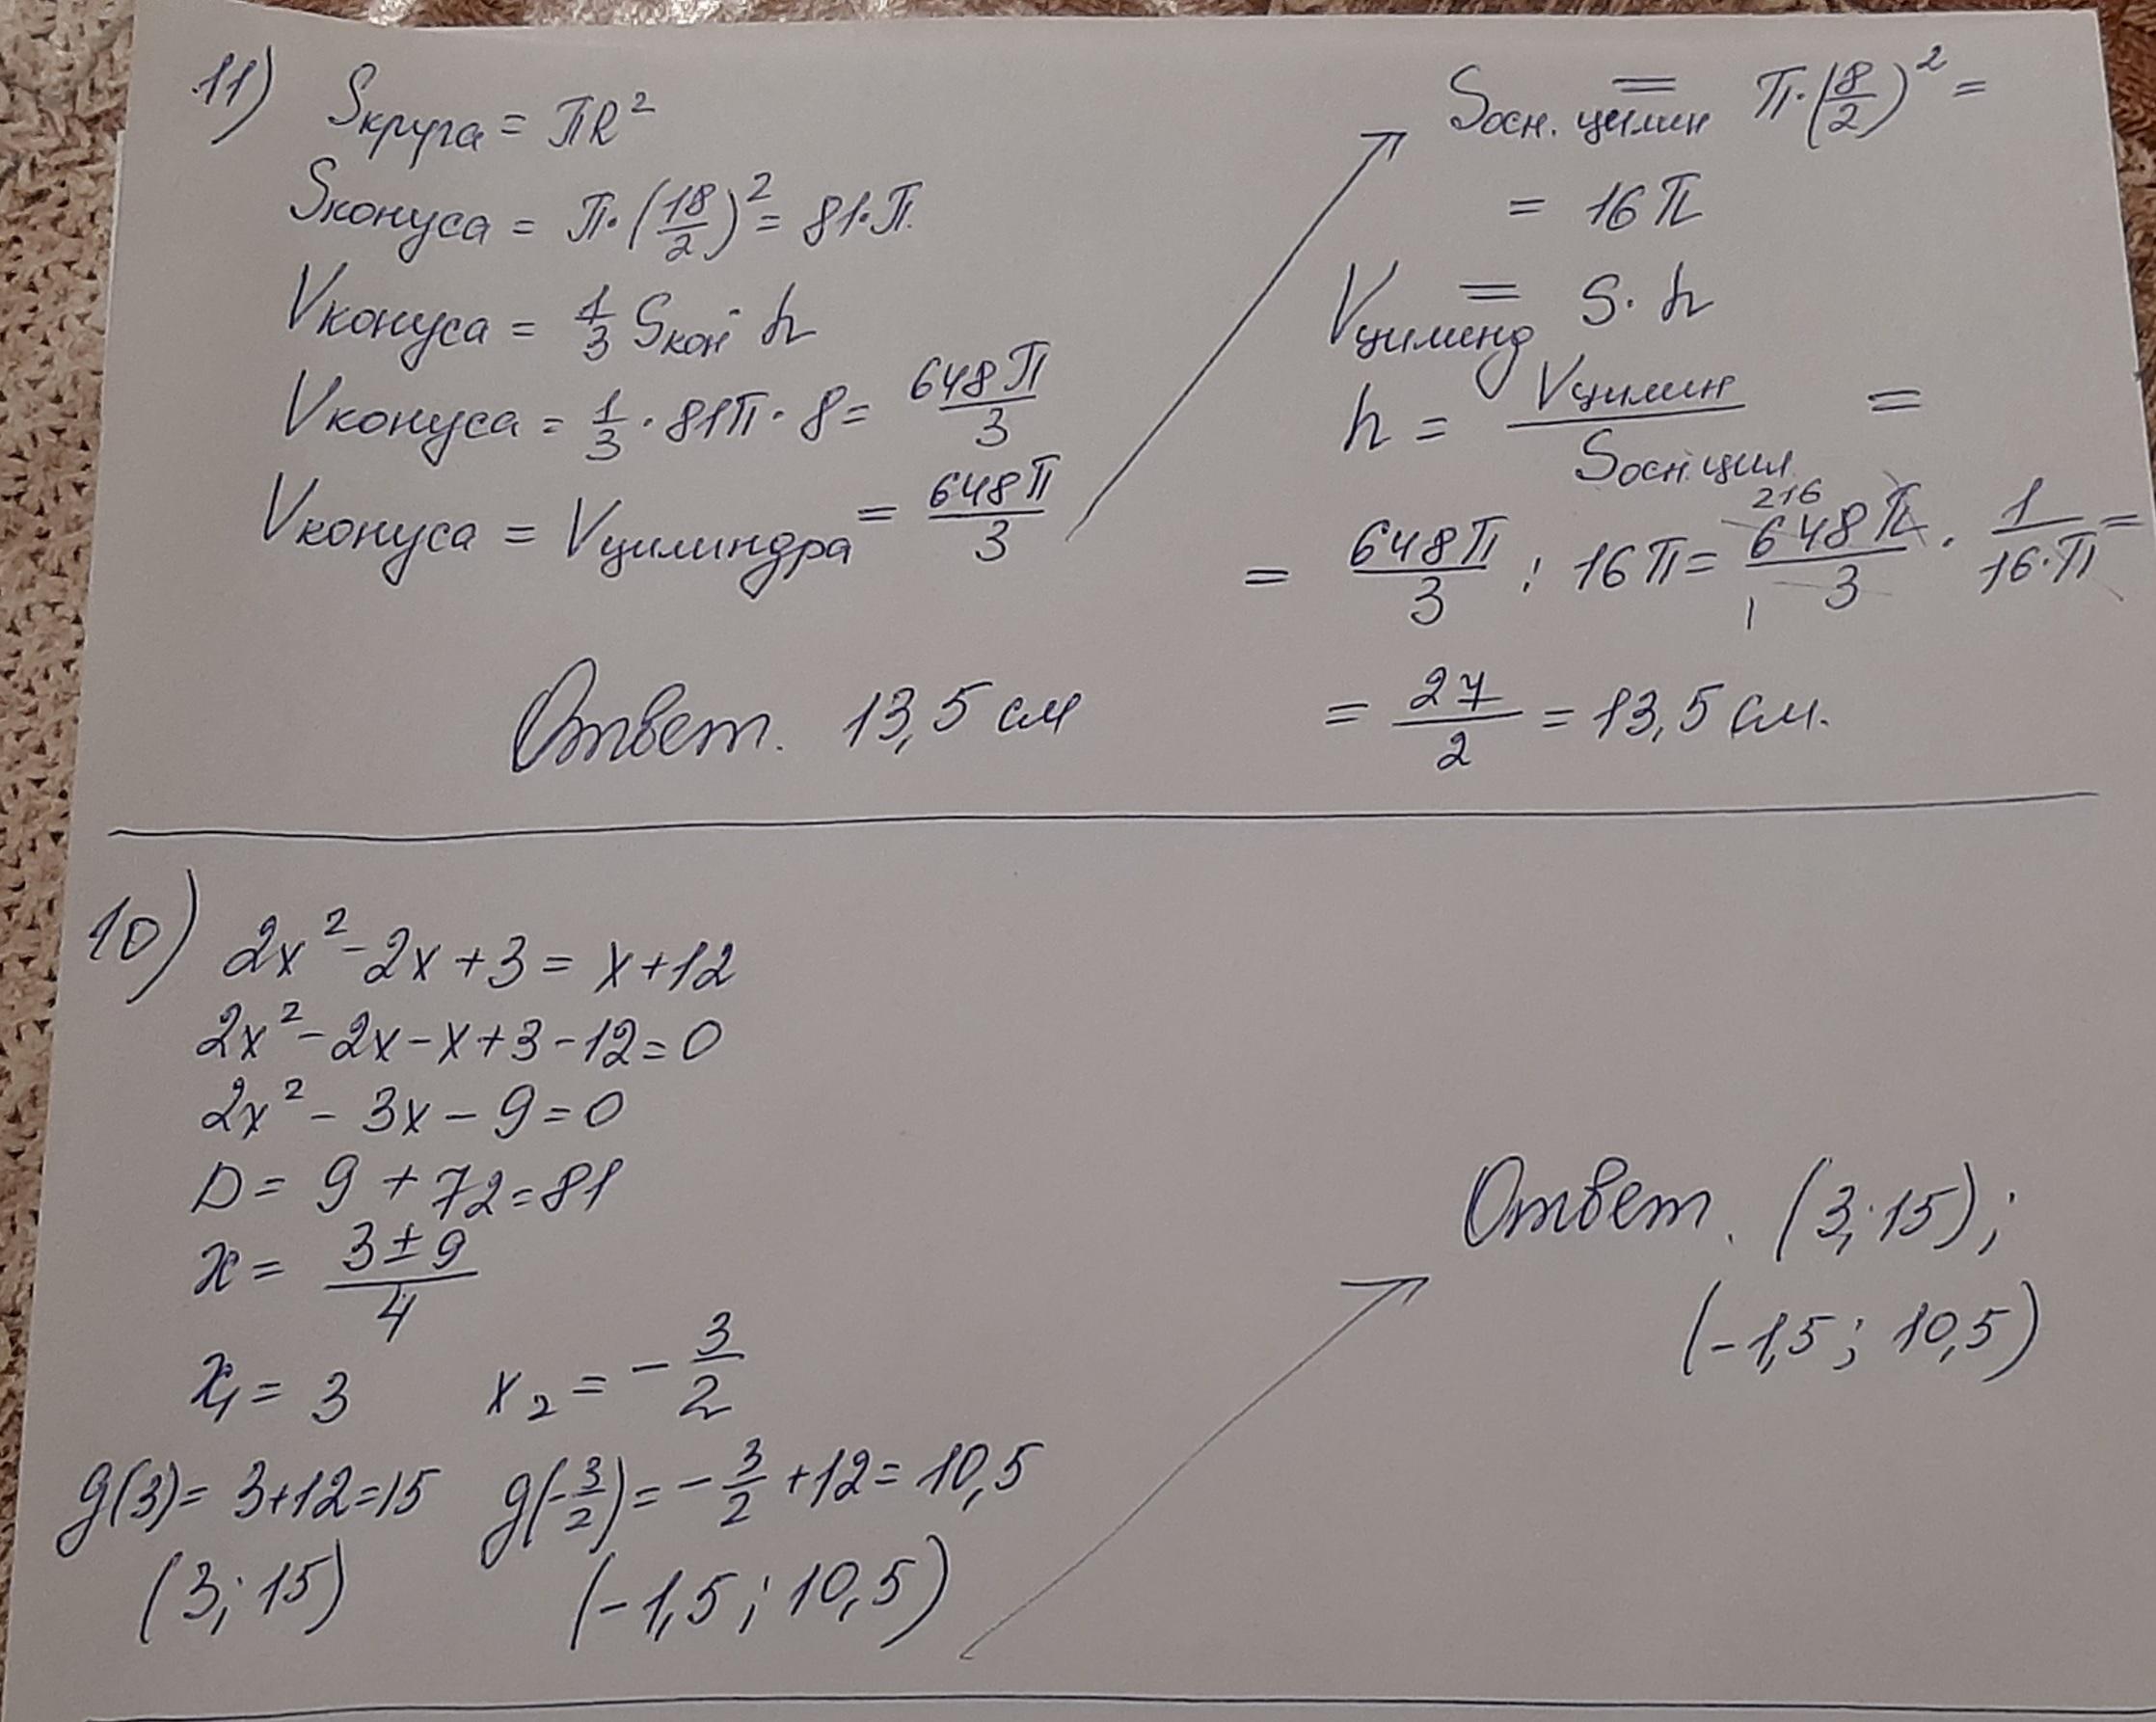 11) Sкруга = πR²
Sконуса = π·(18/2)² = 81·π
Vконуса = 1/3 Sкон · h
Vконуса = 1/3 · 81π · 8 = 648π/3
Vконуса = Vцилиндра = 648π/3
Sосн. цилин = π·(8/2)² =
= 16π
Vцилинд = S·h
h = Vцилин/Sосн.цил =
= 648π/3 : 16π = 216 648π/1 3 · 1/16·π =
= 27/2 = 13,5 см.
Ответ. 13,5 см
10) 2x² - 2x + 3 = x + 12
2x² - 2x - x + 3 - 12 = 0
2x² - 3x - 9 = 0
D = 9 + 72 = 81
x = 3±9/4
x₁ = 3 x₂ = -3/2
g(3) = 3+12=15 g(-3/2) = -3/2 + 12 = 10,5
(3; 15) (-1,5; 10,5)
Ответ. (3; 15);
(-1,5; 10,5)